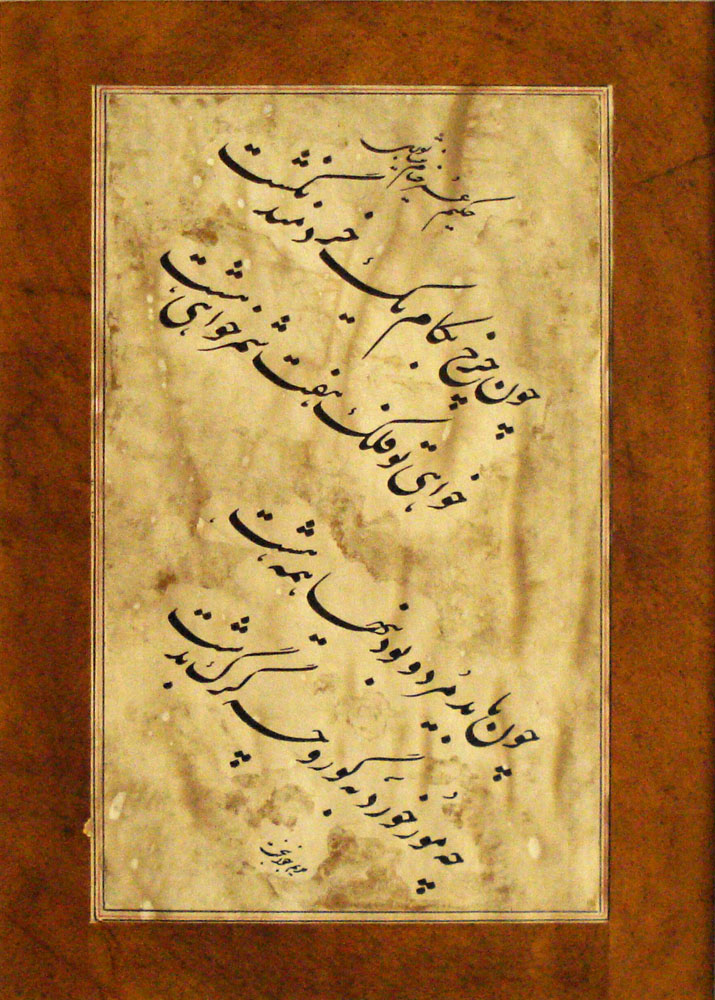 حکیم عمر خیام
چون چرخ بکام یک خردمند نگشت
خواهی تو فلک هفت شمر خواهی هشت
چون باید مرد و بودنیها همه هشت
چه مور خورد بگور و چه گرگ بدشت